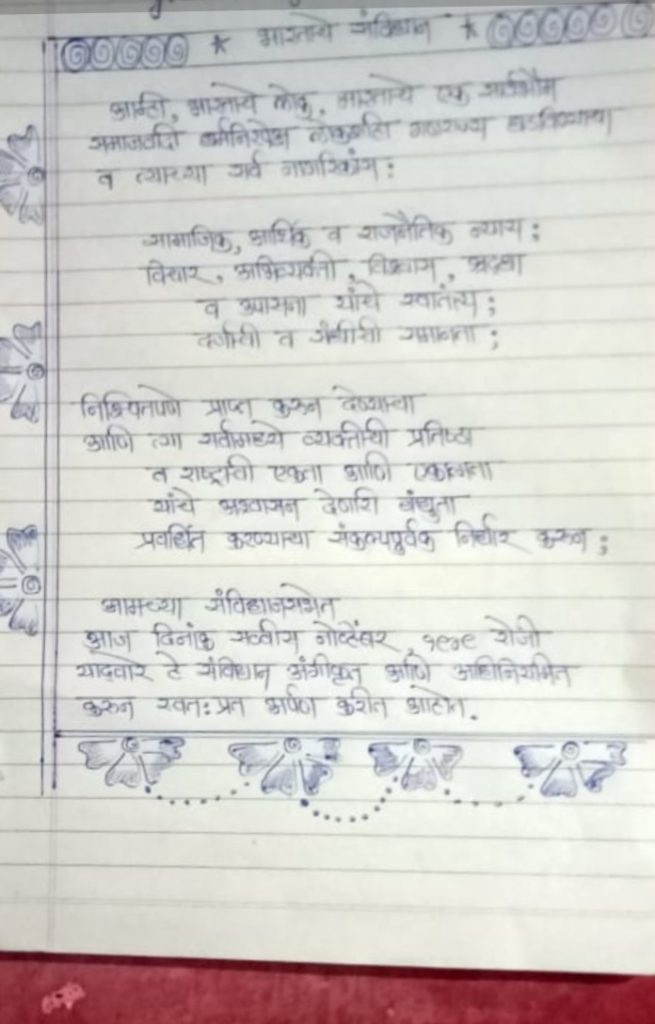 भारताचे संविधान
आम्ही, भारताचे लोक, भारताचे एक सार्वभौम
समाजवादी धर्मनिरपेक्ष लोकशाही गणराज्य घडविण्याचा
व त्याच्या सर्व नागरिकांस:
सामाजिक, आर्थिक व राजनैतिक न्याय;
विचार, अभिव्यक्ती, विश्वास, श्रद्धा
व उपासना यांचे स्वातंत्र्य;
दर्जाची व संधीची समानता;
निश्चितपणे प्राप्त करुन देण्याचा
आणि त्या सर्वामध्ये व्यक्तीची प्रतिष्ठा
व राष्ट्राची एकता आणि एकात्मता
यांचे आश्वासन देणारी बंधुता
प्रवर्धित करण्याचा संकल्पपूर्वक निर्धार करुन;
आमच्या संविधानसभेत
आज दिनांक सव्वीस नोव्हेंबर, १९४९ रोजी
याद्वारे हे संविधान अंगीकृत आणि अधिनियमित
करुन स्वत:प्रत अर्पण करीत आहोत.